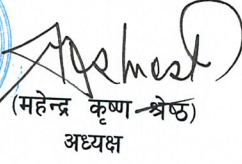 (महेन्द्र कृष्ण श्रेष्ठ)
अध्यक्ष